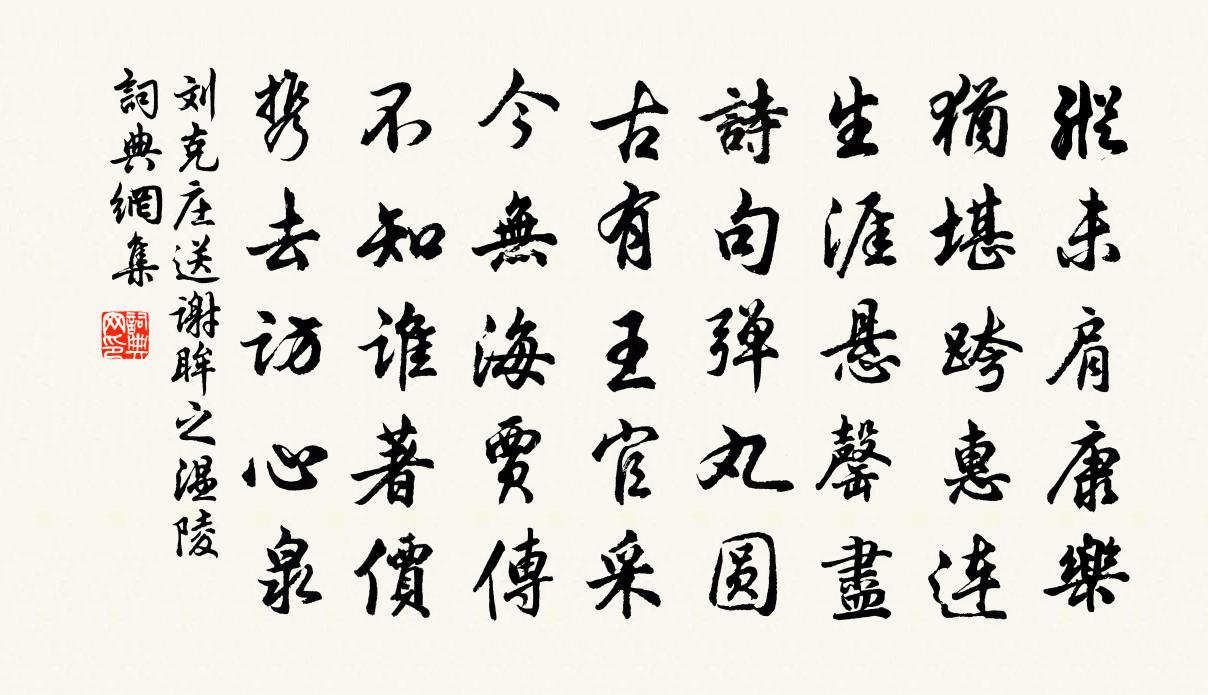 縱未肩康樂
猶堪跨惠连
生涯悬罄盡
詩句弹丸圆
古有王官采
今無海賈傳
不知谁著價
携去访心泉
刘克庄送谢眸之温陵
詞典網集
詞典网印